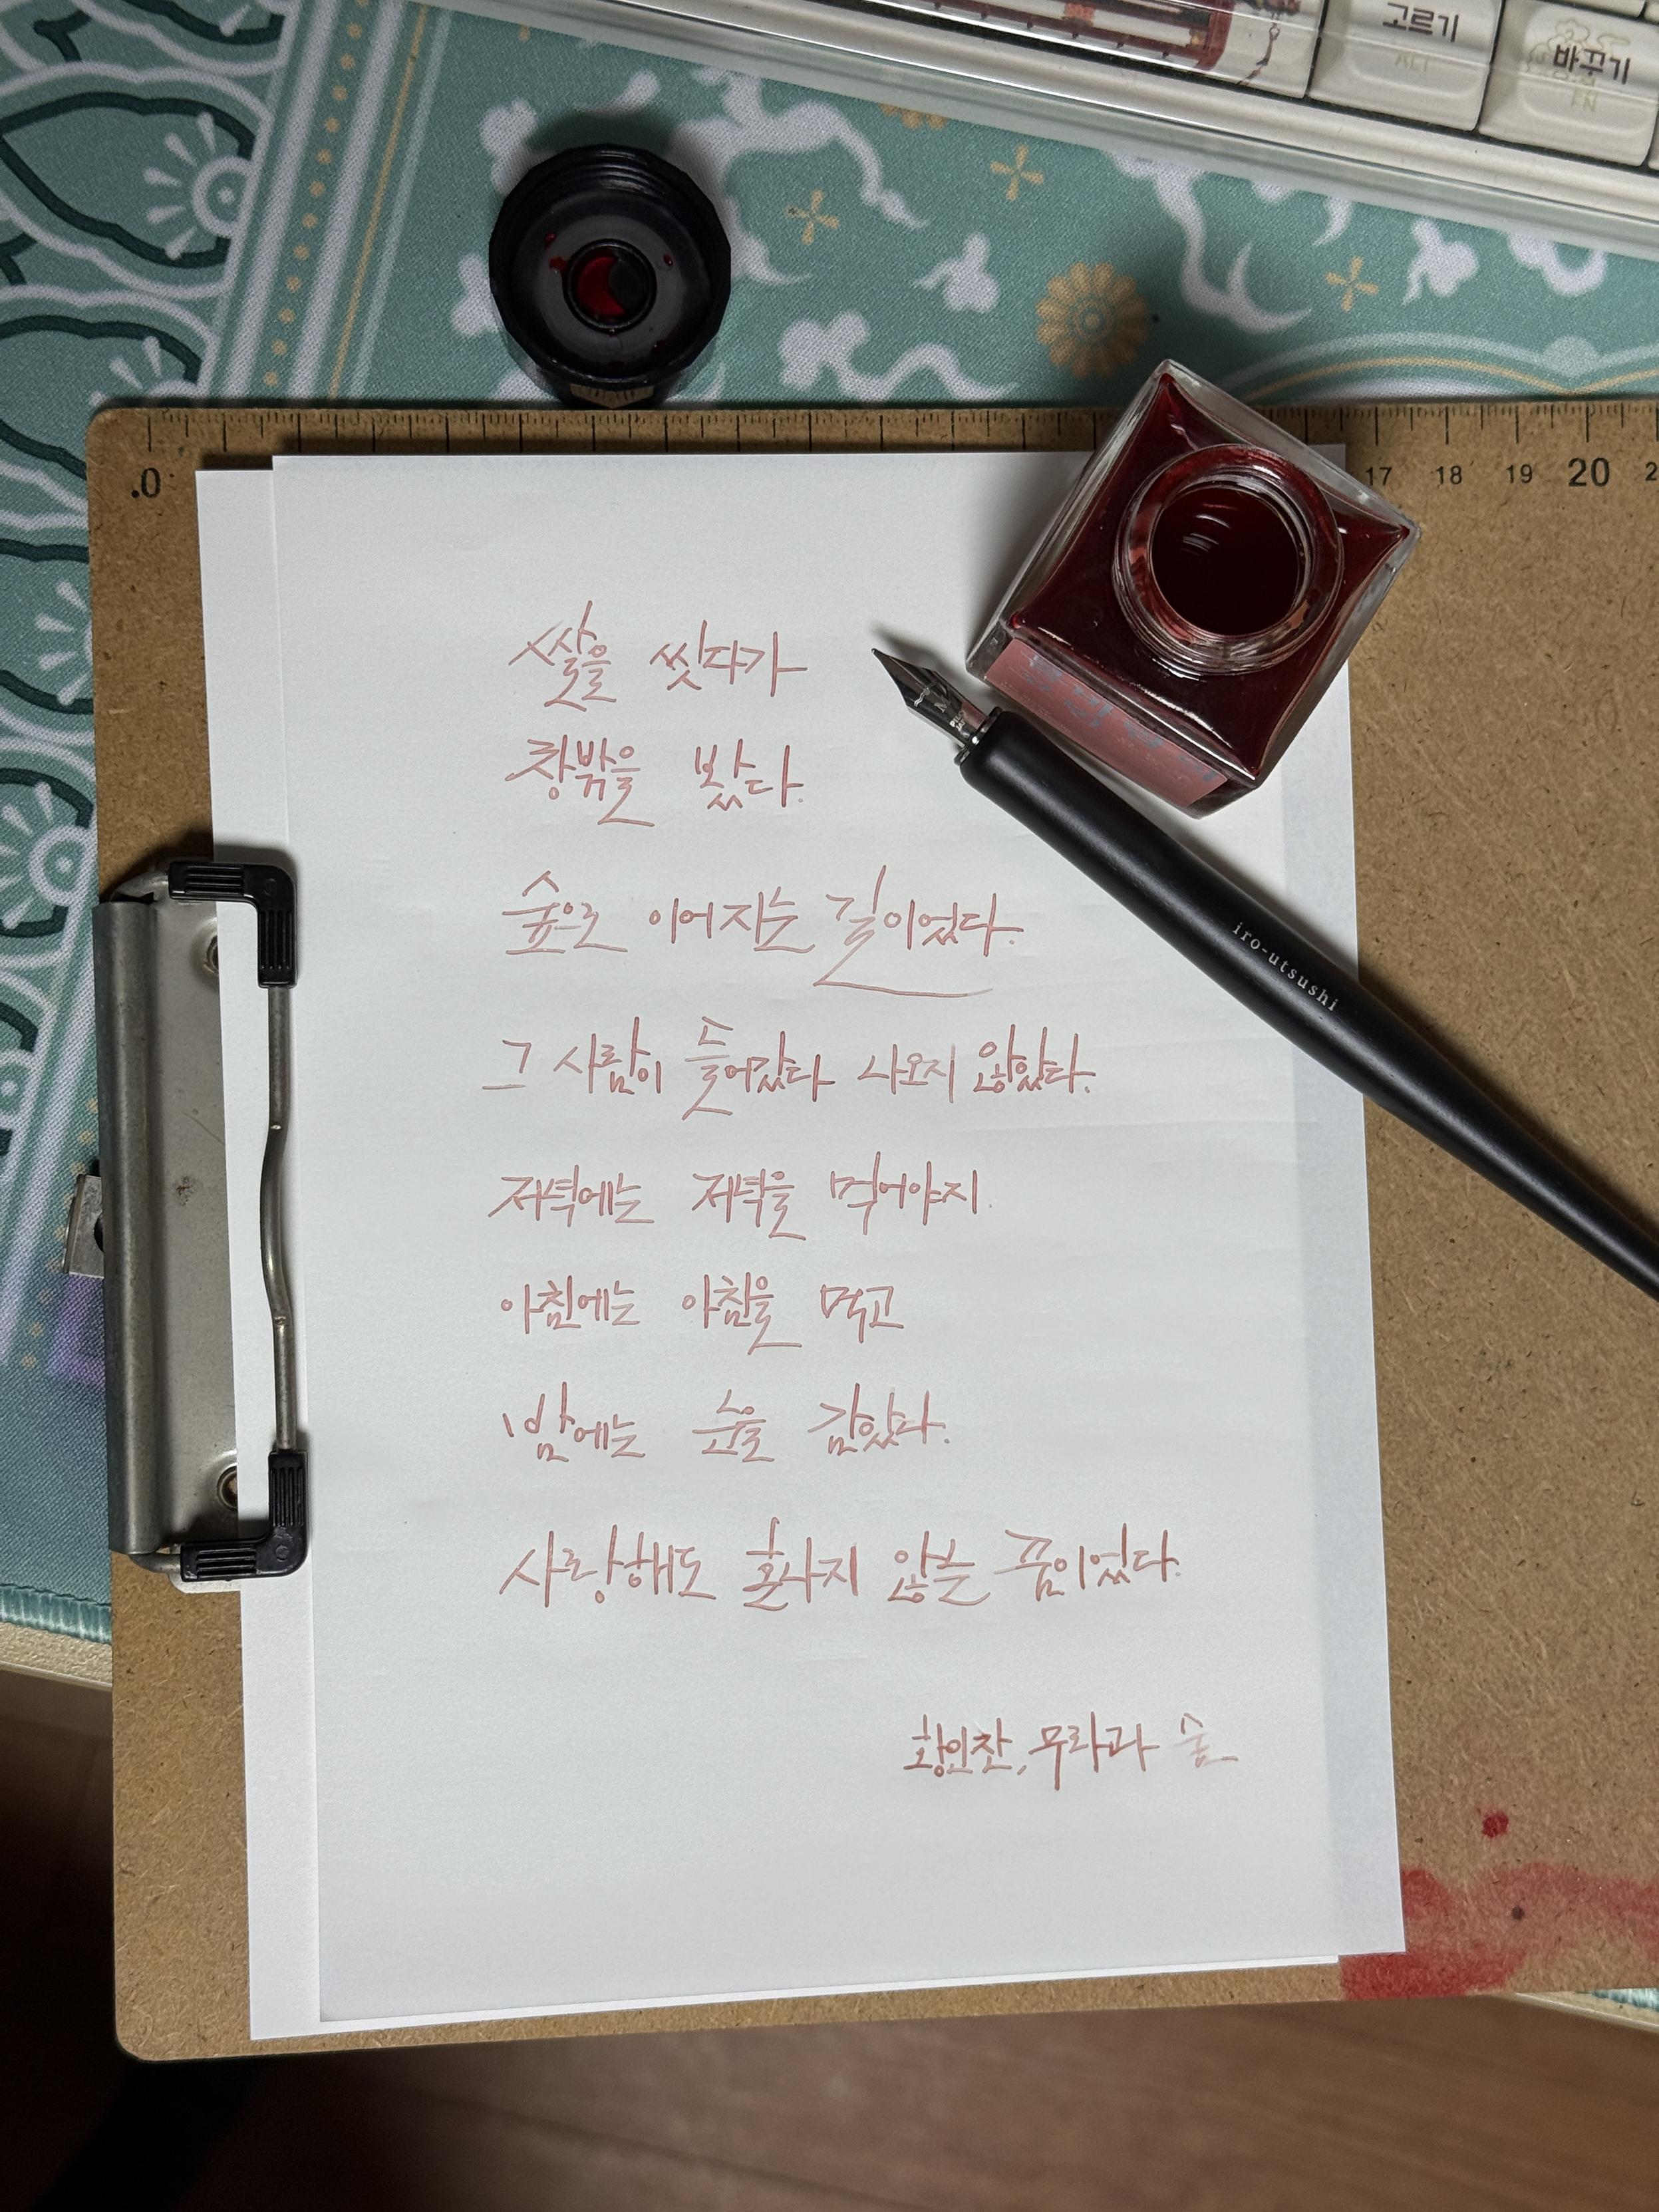 고르기 바꾸기
.0 17 18 19 20
쌀을 씻다가
창밖을 봤다.
숲으로 이어지는 길이었다.
그 사람이 들어갔다 나오지 않았다.
저녁에는 저녁을 먹어야지.
아침에는 아침을 먹고
밤에는 눈을 감았다.
사랑해도 혼나지 않는 꿈이었다.
황인찬, 무화과 숲
iro-utsushi